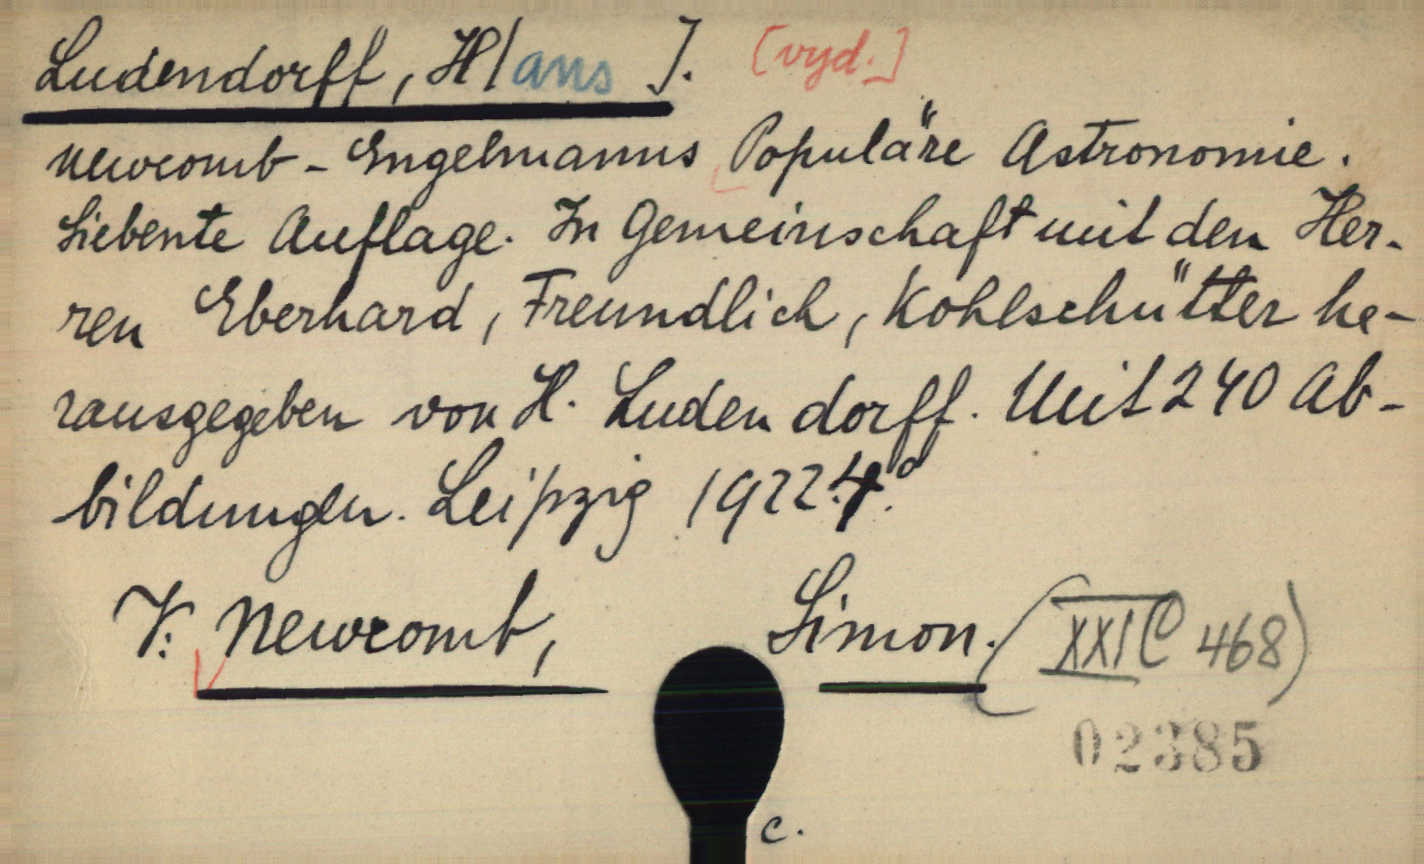 Ludendorff, H[ans]. [vyd.]
Newcomb - Engelmanns Populäre Astronomie.
Siebente Auflage. In Gemeinschaft mit den Her-
ren Eberhard, Freundlich, Kohlschütter he-
rausgegeben von H. Ludendorff. Mit 240 Ab-
bildungen. Leipzig 1922. 4°.
V: Newcomb, Simon. (XXI C 468)
02385
c.